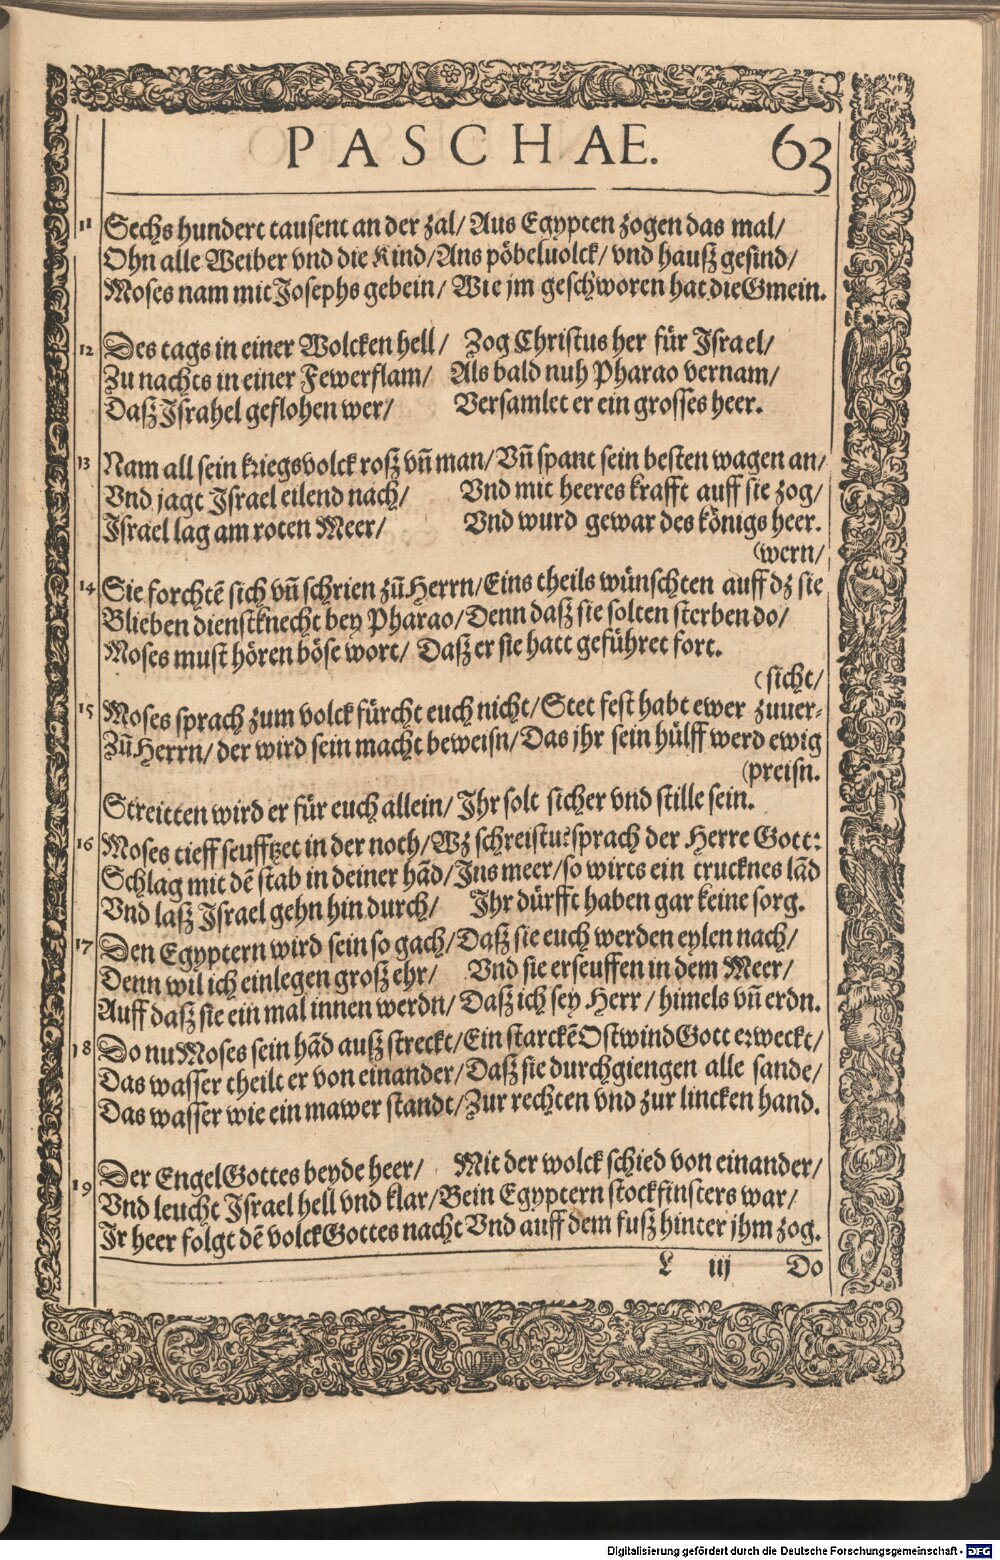 PASCHAE. 63
11 Sechs hundert tausent an der zal/ Aus Egypten zogen das mal/
Ohn alle Weiber vnd die Kind/ Ans pöbeluolck/ vnd hauß gesind/
Moses nam mit Josephs gebein/ Wie jm geschworen hat die Gmein.
12 Des tags in einer Wolcken hell/ Zog Christus her für Jsrael/
Zu nachts in einer Fewerflam/ Als bald nuh Pharao vernam/
Daß Jsrahel geflohen wer/ Versamlet er ein grosses heer.
13 Nam all sein kriegsvolck roß vñ man/ Vñ spant sein besten wagen an/
Vnd jagt Jsrael eilend nach/ Vnd mit heeres krafft auff sie zog/
Jsrael lag am roten Meer/ Vnd wurd gewar des königs heer.
(wern/
14 Sie forchtē sich vñ schrien zū Herrn/ Eins theils wünschten auff dz sie
Blieben dienstknecht bey Pharao/ Denn daß sie solten sterben do/
Moses must hören böse wort/ Daß er sie hatt geführet fort.
(sicht/
15 Moses sprach zum volck fürcht euch nicht/ Stet fest habt ewer zuuer-
Zū Herrn/ der wird sein macht beweisn/ Das jhr sein hülff werd ewig
(preisn.
Streitten wird er für euch allein/ Jhr solt sicher vnd stille sein.
16 Moses tieff seufftzet in der noth/ Wz schreistu? sprach der Herre Gott:
Schlag mit dē stab in deiner hād/ Jns meer/ so wirts ein trucknes lād
Vnd laß Jsrael gehn hin durch/ Jhr dürfft haben gar keine sorg.
17 Den Egyptern wird sein so gach/ Daß sie euch werden eylen nach/
Denn wil ich einlegen groß ehr/ Vnd sie erseuffen in dem Meer/
Auff daß sie ein mal innen werdn/ Daß ich sey Herr/ himels vñ erdn.
18 Do nu Moses sein hād auß streckt/ Ein starckē Ostwind Gott erweckt/
Das wasser theilt er von einander/ Daß sie durchgiengen alle sande/
Das wasser wie ein mawer standt/ Zur rechten vnd zur lincken hand.
19 Der Engel Gottes beyde heer/ Mit der wolck schied von einander/
Vnd leucht Jsrael hell vnd klar/ Bein Egyptern stockfinsters war/
Jr heer folgt dē volck Gottes nacht Vnd auff dem fuß hinter jhm zog.
L iij Do
Digitalisierung gefördert durch die Deutsche Forschungsgemeinschaft - DFG